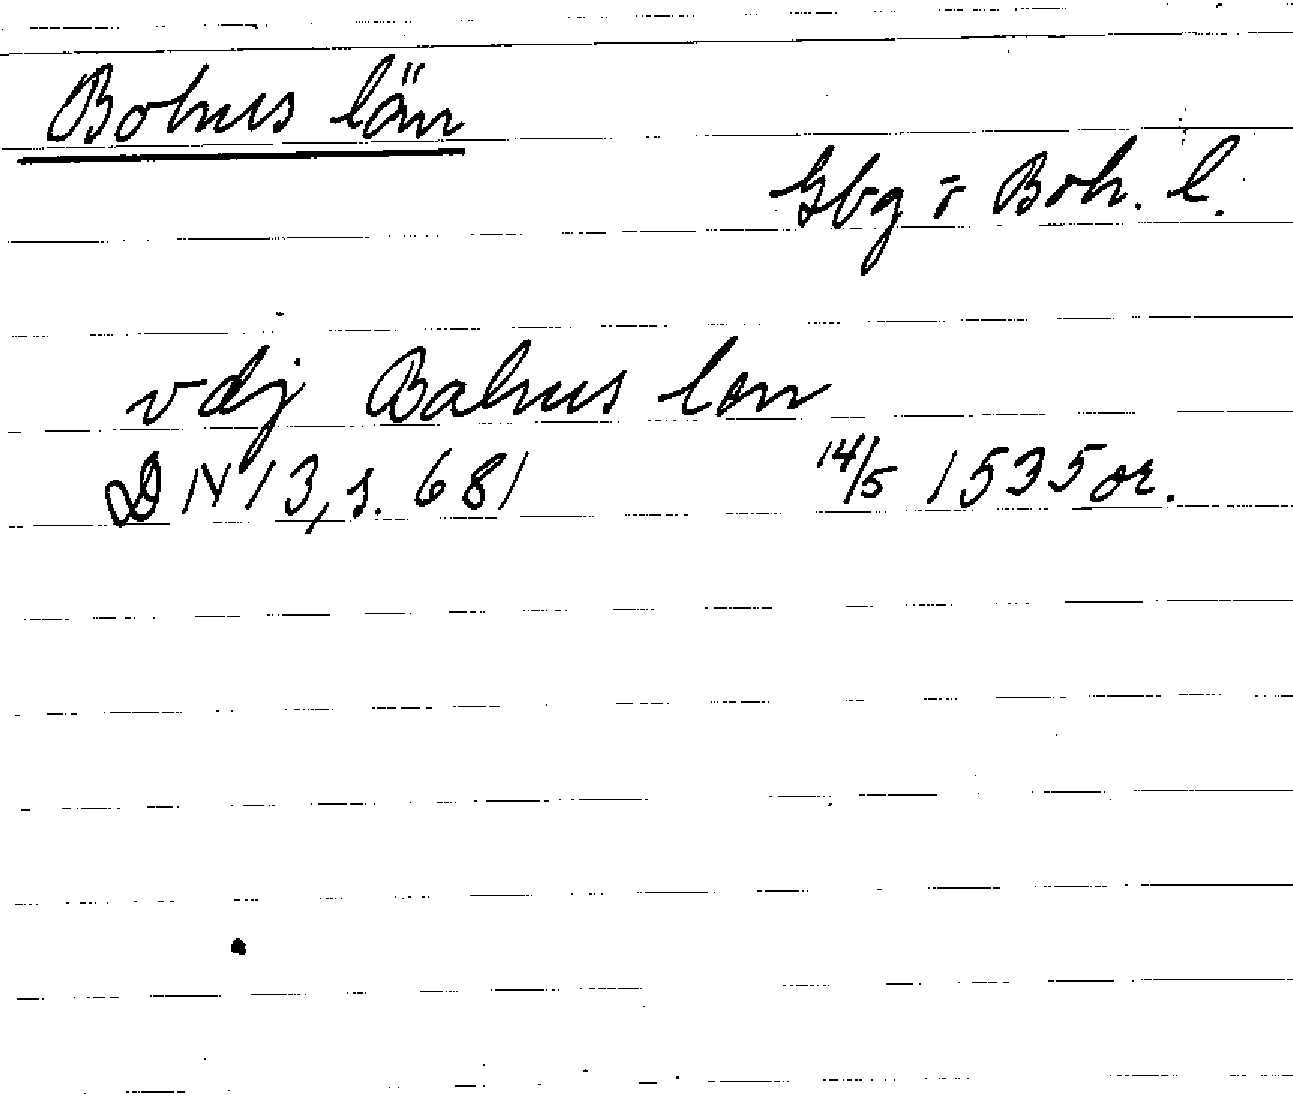 Bohus län
Gbg o Boh. l.
vdj Bahus len
DN 13, s. 681 14/5 1535 or.